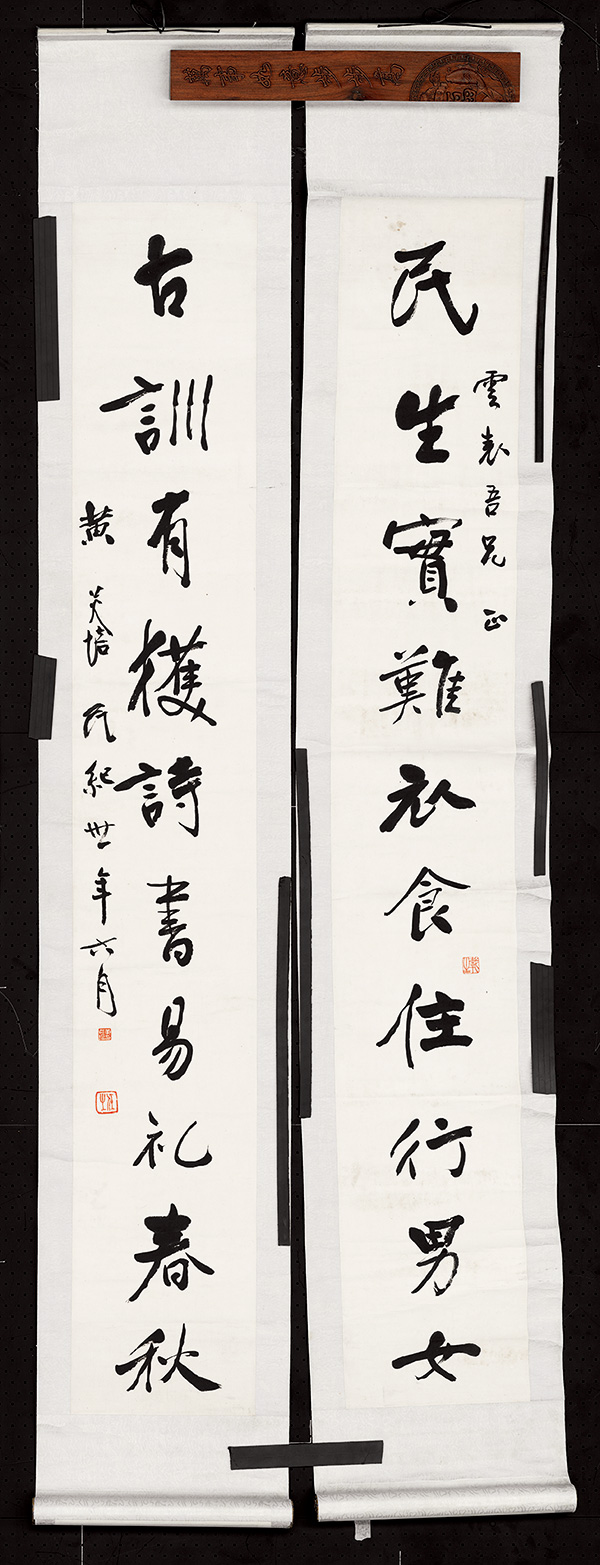 雲表吾兄正
民生實難衣食住行男女
古訓有獲詩書易礼春秋
黄炎培 民紀卅年六月